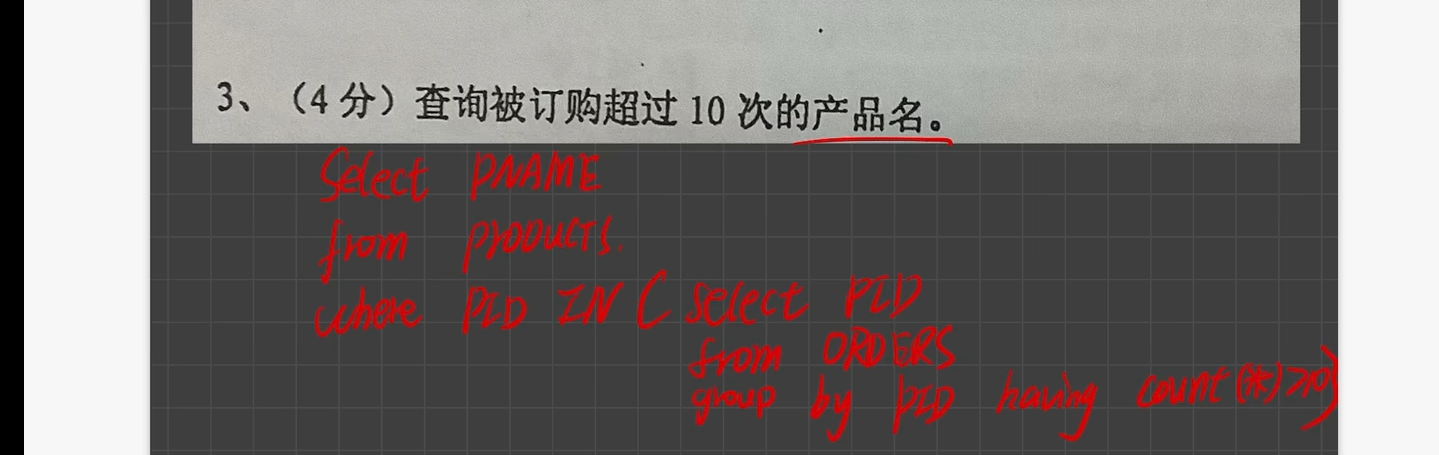 3、（4 分）查询被订购超过 10 次的产品名。
Select PNAME
from PRODUCTS.
where PID IN ( select PID
from ORDERS
group by PID having count(*)>10)